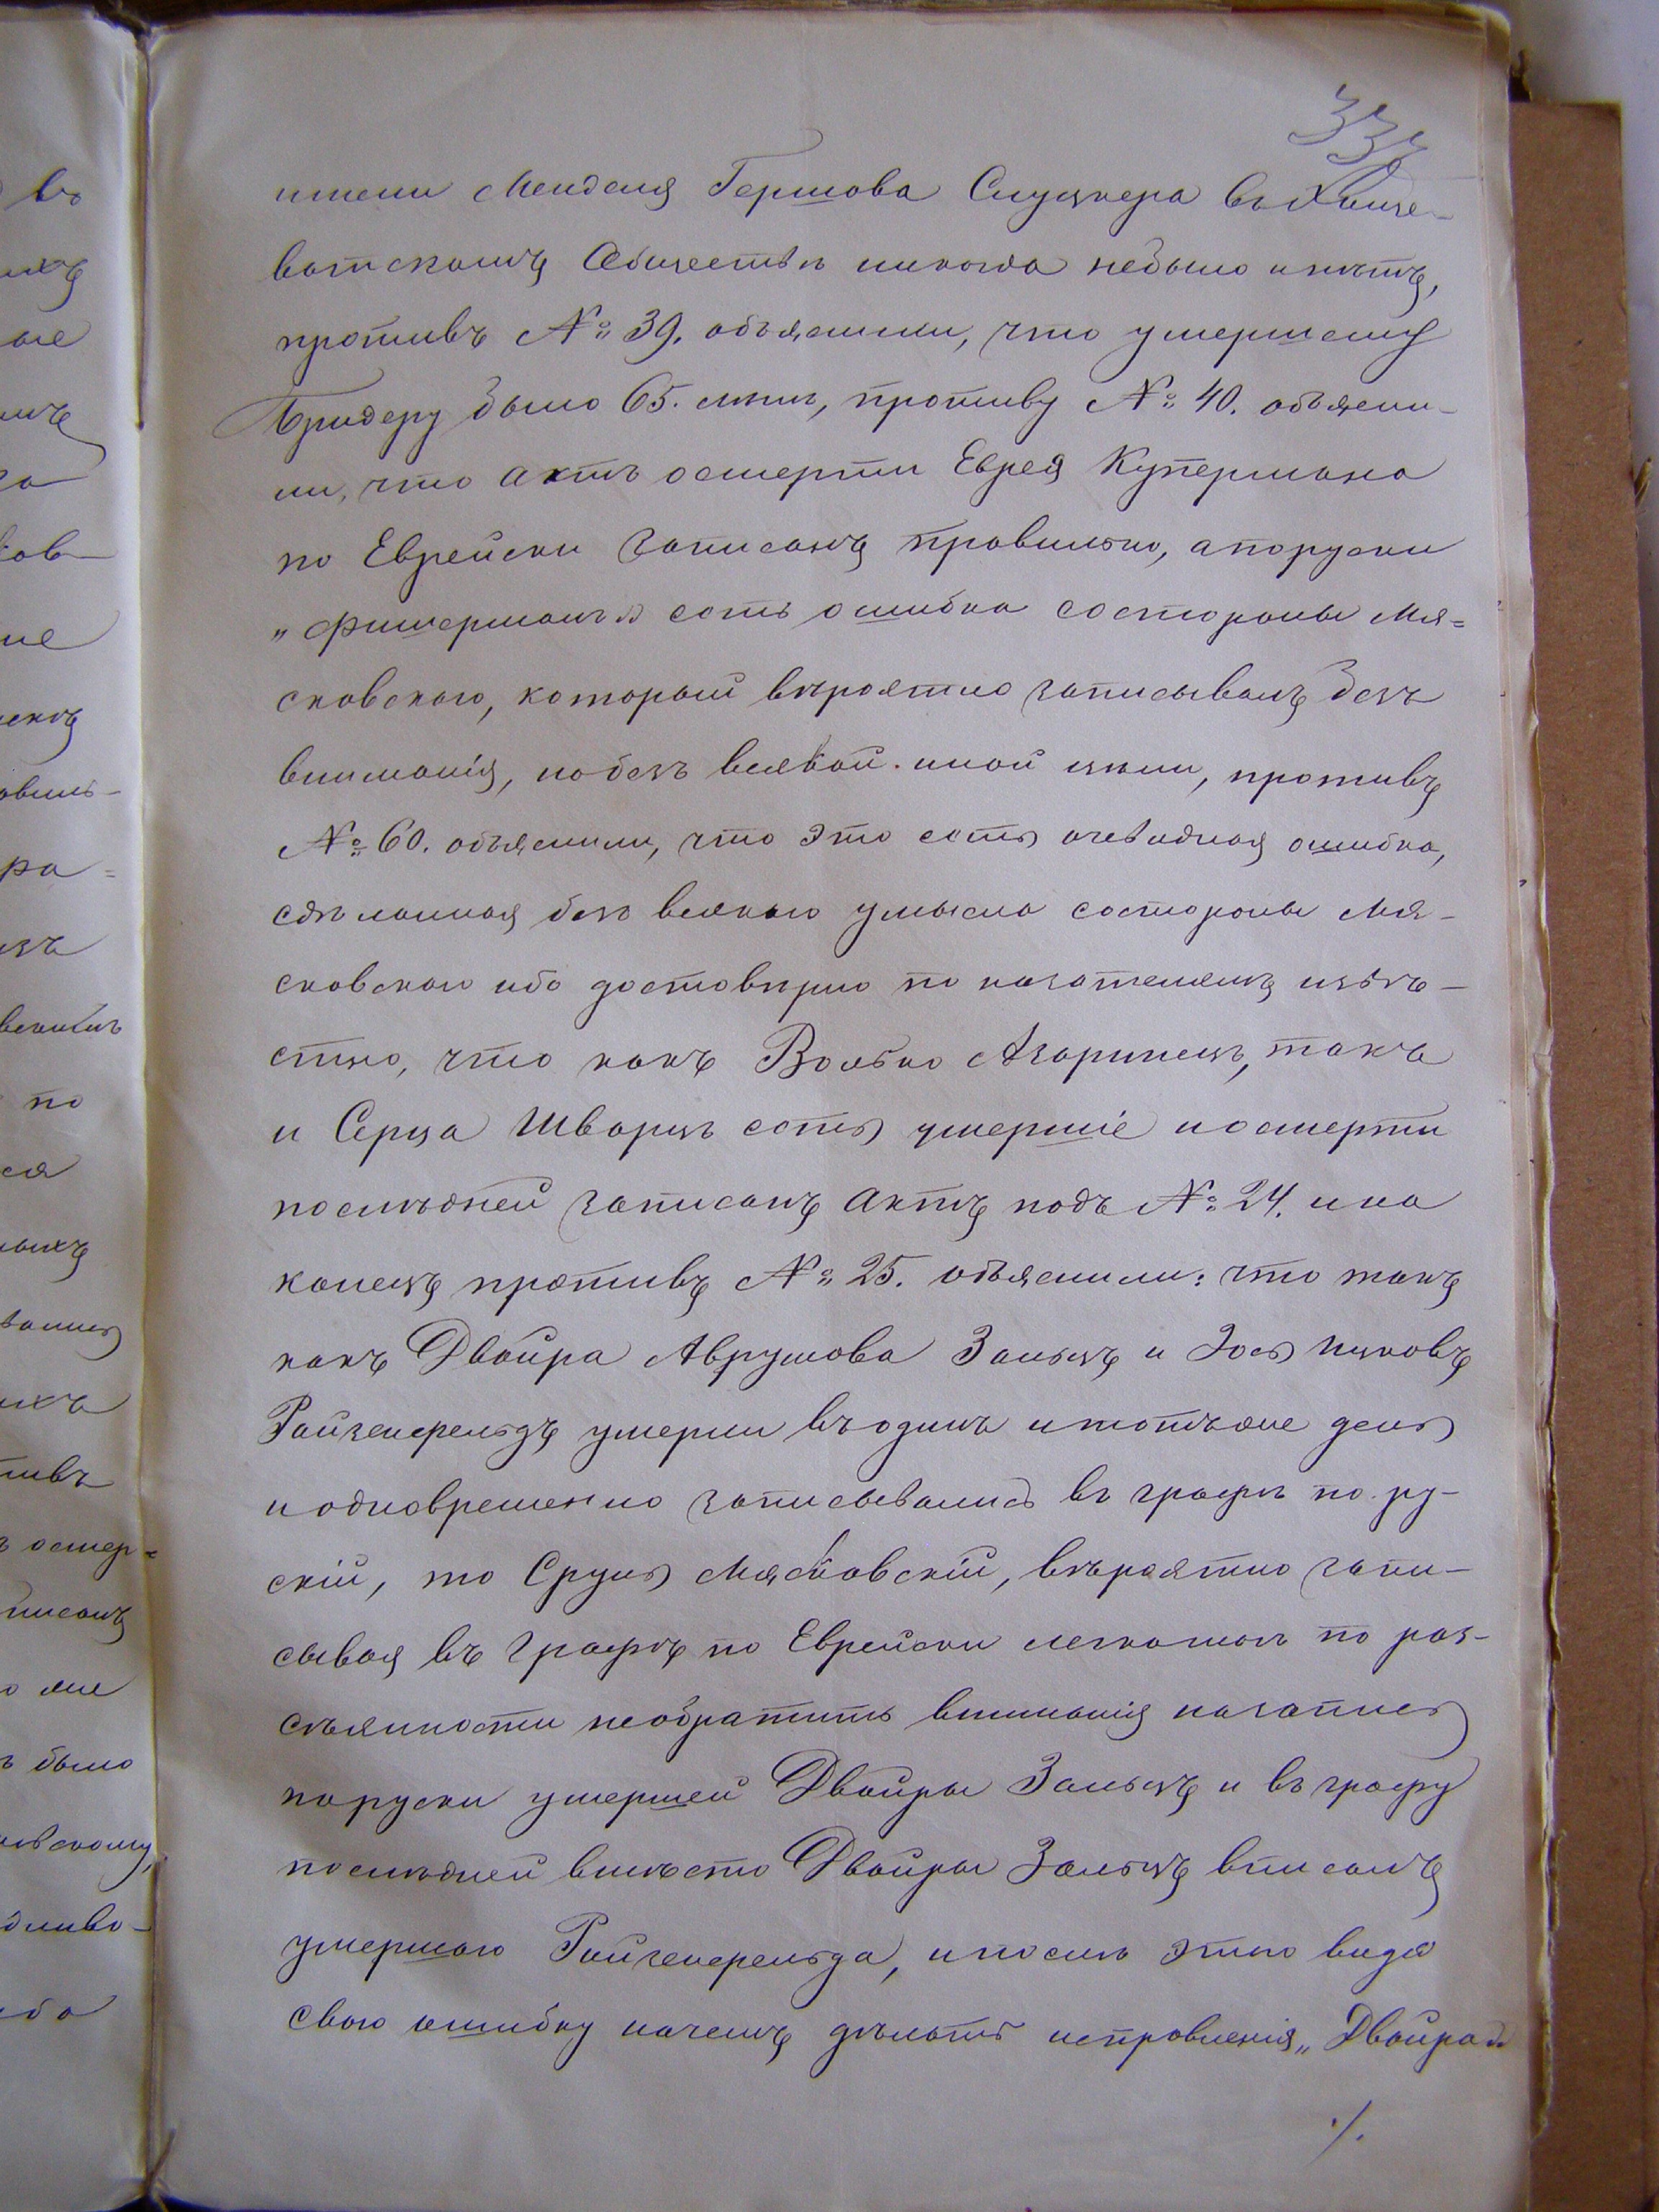 33
имени Менделя Гершова Слуцкера въ Хаще-
ватскомъ Обществѣ никогда небыло и нѣтъ,
противъ № 39. объяснили, что умершему
Бридеру было 65. лѣтъ, противу № 40. объясни-
ли, что актъ осмерти Еврея Купермана
по Еврейски записанъ правильно, апоруски
„Фишерманъ" есть ошибка состороны Мя=
сковского, который вѣроятно записывалъ безъ
вниманія, нобезъ всякой иной цѣли, противъ
№ 60. объяснили, что это есть очевидная ошибка,
сдѣланная безъ всякаго умысла состороны Мя-
сковского ибо достовѣрно по казателямъ извѣ-
стно, что какъ Волько Азаринецъ, такъ
и Серца Шварцъ есть умершіе иосмерти
послѣдней записанъ актъ подъ № 24. и на
конецъ противъ № 25. объяснили: что такъ
какъ Двойра Аврумова Зальцъ и Зось Ицковъ
Райзенфельдъ умерли въодинъ итотъже день
и одновременно записывались въ графѣ по ру-
скій, то Сруль Мясковскій, вѣроятно запи-
сывая въ графѣ по Еврейски легкомогъ по раз-
сѣянности необратить вниманія назапись
поруски умершей Двойры Зальцъ и въ графу
послѣдней вмѣсто Двойры Зальцъ вписалъ
умершаго Райзенфельда, ипослѣ этаго видя
свою ошибку началъ дѣлать исправленія „Двойра"
./.
въ
по
было